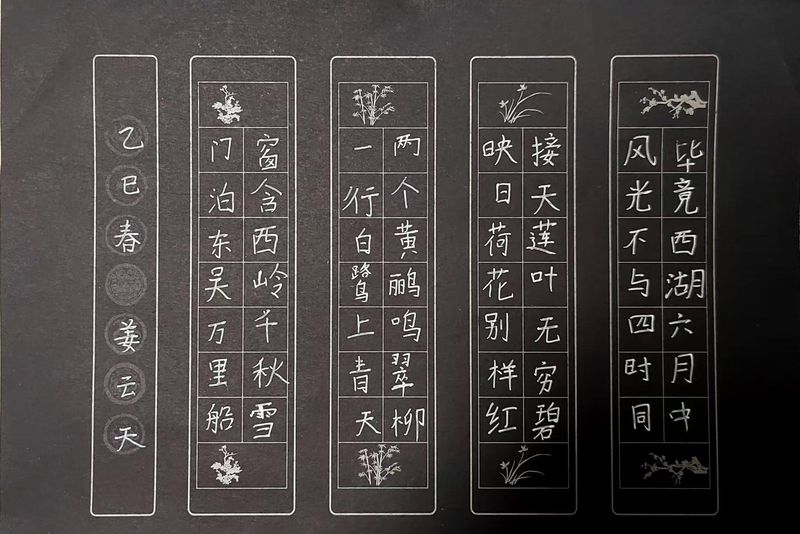 毕竟西湖六月中
风光不与四时同
接天莲叶无穷碧
映日荷花别样红
两个黄鹂鸣翠柳
一行白鹭上青天
窗含西岭千秋雪
门泊东吴万里船
乙巳春 姜云天